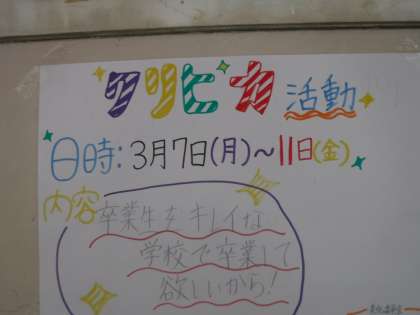 クリピカ活動
日時:3月7日(月)～11日(金)
内容
卒業生をキレイな
学校で卒業して
欲しいから!